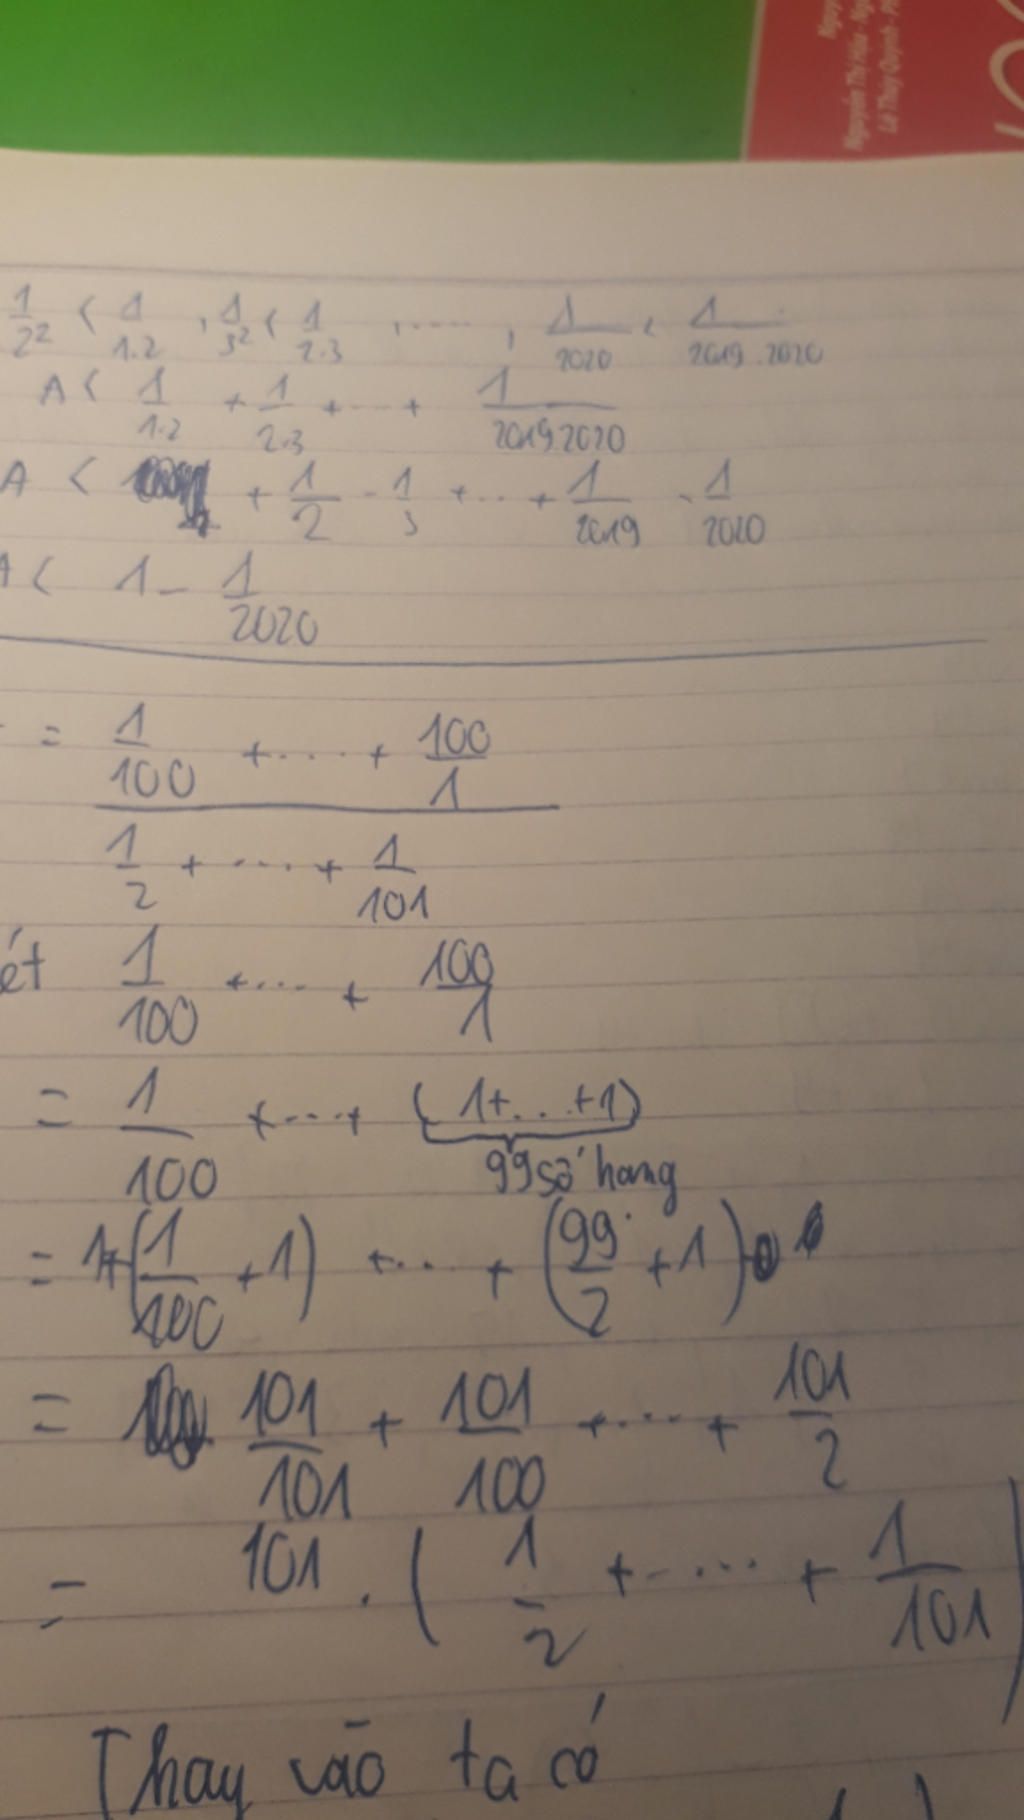 Nguyễn Thị Hòa - Ng
Lê Thúy Quỳnh - P
1/2² < 1/1.2 , 1/3² < 1/2.3 , ..... , 1/2020 < 1/2019.2020
A < 1/1.2 + 1/2.3 + ... + 1/2019.2020
A < + 1/2 - 1/3 + ... + 1/2019 - 1/2020
A < 1 - 1/2020
= (1/100 + .... + 100/1) / (1/2 + .... + 1/101)
ét 1/100 + .... + 100/1
= 1/100 + .... + (1+...+1)
99 số hang
= 1+(1/100 + 1) + ... + (99/2 + 1)
= 101/101 + 101/100 + .... + 101/2
= 101 . (1/2 + .... + 1/101)
Thay vào ta có